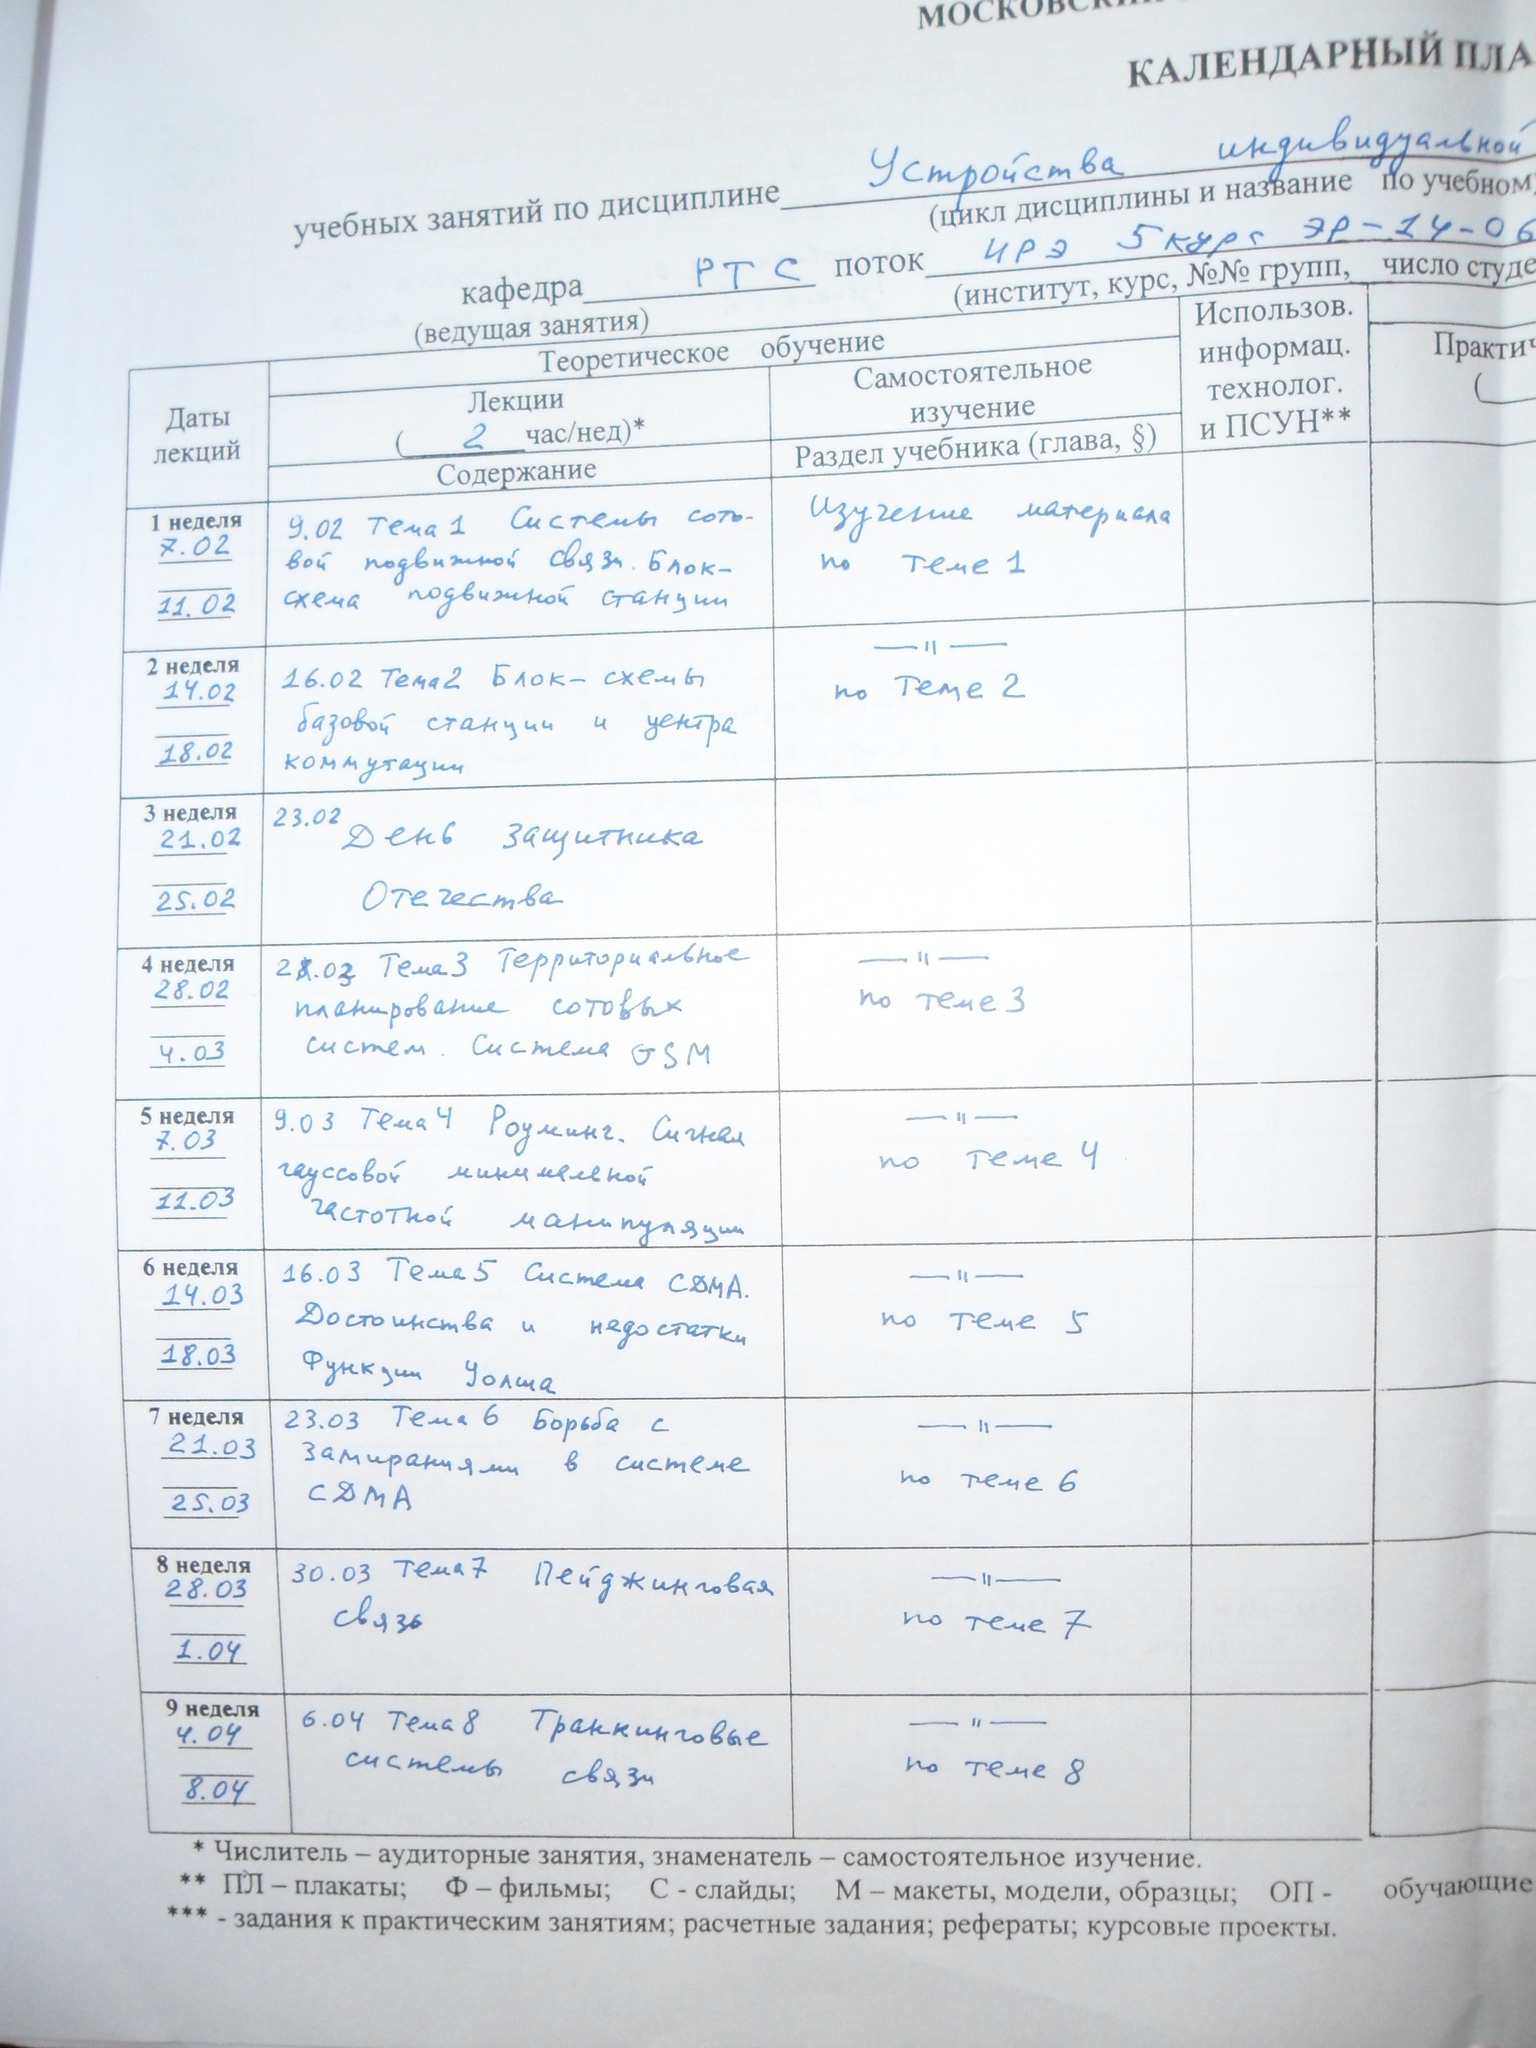 МОСКОВСКИЙ
КАЛЕНДАРНЫЙ ПЛА
учебных занятий по дисциплине Устройства индивидуальной
(цикл дисциплины и название по учебному
кафедра РТС поток ИРЭ 5 курс ЭР-14-06
(ведущая занятия) (институт, курс, №№ групп, число студе
Даты лекций
Теоретическое обучение
Лекции
( 2 час/нед)*
Содержание
Самостоятельное
изучение
Раздел учебника (глава, §)
Использов.
информац.
технолог.
и ПСУН**
Практич
(
1 неделя
7.02
11.02
9.02 Тема 1 Системы сото-
вой подвижной связи. Блок-
схема подвижной станции
Изучение материала
по теме 1
2 неделя
14.02
18.02
16.02 Тема 2 Блок-схемы
базовой станции и центра
коммутации
—"—
по теме 2
3 неделя
21.02
25.02
23.02
День защитника
Отечества
4 неделя
28.02
4.03
Тема 3 Территориальное
планирование сотовых
систем. Система GSM
—"—
по теме 3
5 неделя
7.03
11.03
9.03 Тема 4 Роуминг. Сигнал
гауссовой минимальной
частотной манипуляции
—"—
по теме 4
6 неделя
14.03
18.03
16.03 Тема 5 Система CDMA.
Достоинства и недостатки
Функции Уолша
—"—
по теме 5
7 неделя
21.03
25.03
23.03 Тема 6 Борьба с
замираниями в системе
CDMA
—"—
по теме 6
8 неделя
28.03
1.04
30.03 Тема 7 Пейджинговая
связь
—"—
по теме 7
9 неделя
4.04
8.04
6.04 Тема 8 Транкинговые
системы связи
—"—
по теме 8
* Числитель – аудиторные занятия, знаменатель – самостоятельное изучение.
** ПЛ – плакаты; Ф – фильмы; С - слайды; М – макеты, модели, образцы; ОП - обучающие
*** - задания к практическим занятиям; расчетные задания; рефераты; курсовые проекты.